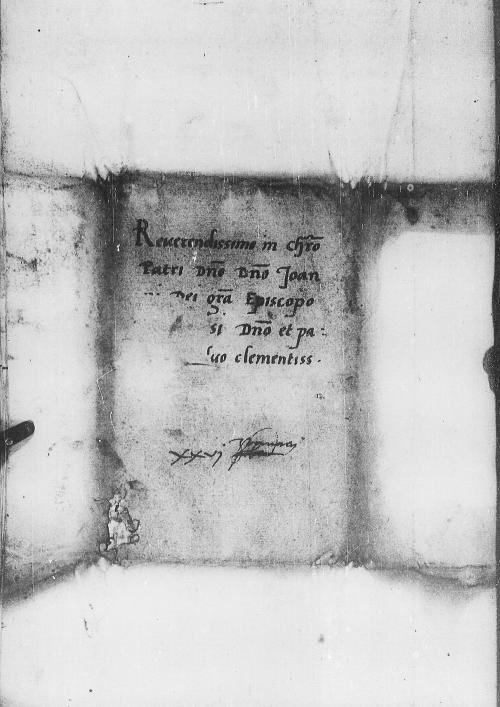 Reverendissimo in chr̃o
Patri Dño Dño Joan
Dei grã Episcopo
si Dño et pa:
uo clementiss.
xxvj